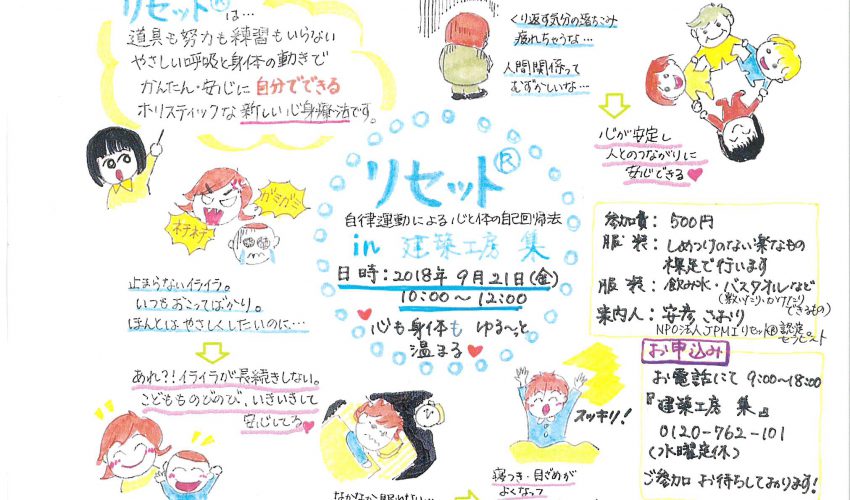 リセット®は…
道具も努力も練習もいらない
やさしい呼吸と身体の動きで
かんたん・安心に自分でできる
ホリスティックな新しい心身療法です。
くり返す気分の落ちこみ
疲れちゃうな…
人間関係って
むずかしいな…
心が安定し
人とのつながりに
安心できる♥
ガミガミ
ネチネチ
止まらないイライラ。
いつもおこってばかり。
ほんとはやさしくしたいのに…
あれ?!イライラが長続きしない。
こどもものびのび、いきいきして
安心してる♥
リセット®
自律運動による心と体の自己回帰法
in 建築工房 集
日時:2018年9月21日(金)
10:00〜12:00
♥心も身体も ゆる〜っと
温まる♥
スッキリ!
なかなか眠れない…
寝つき・目ざめが
よくなって
参加費: 500円
服装: しめつけのない楽なもの
裸足で行います
服装: 飲み水・バスタオルなど
(敷いたり、かけたりできるもの)
案内人: 安彦 さおり
NPO法人JPMIリセット®認定セラピスト
お申込み
お電話にて 9:00〜18:00
『建築工房 集』
0120-762-101
(水曜定休)
ご参加 お待ちしております!